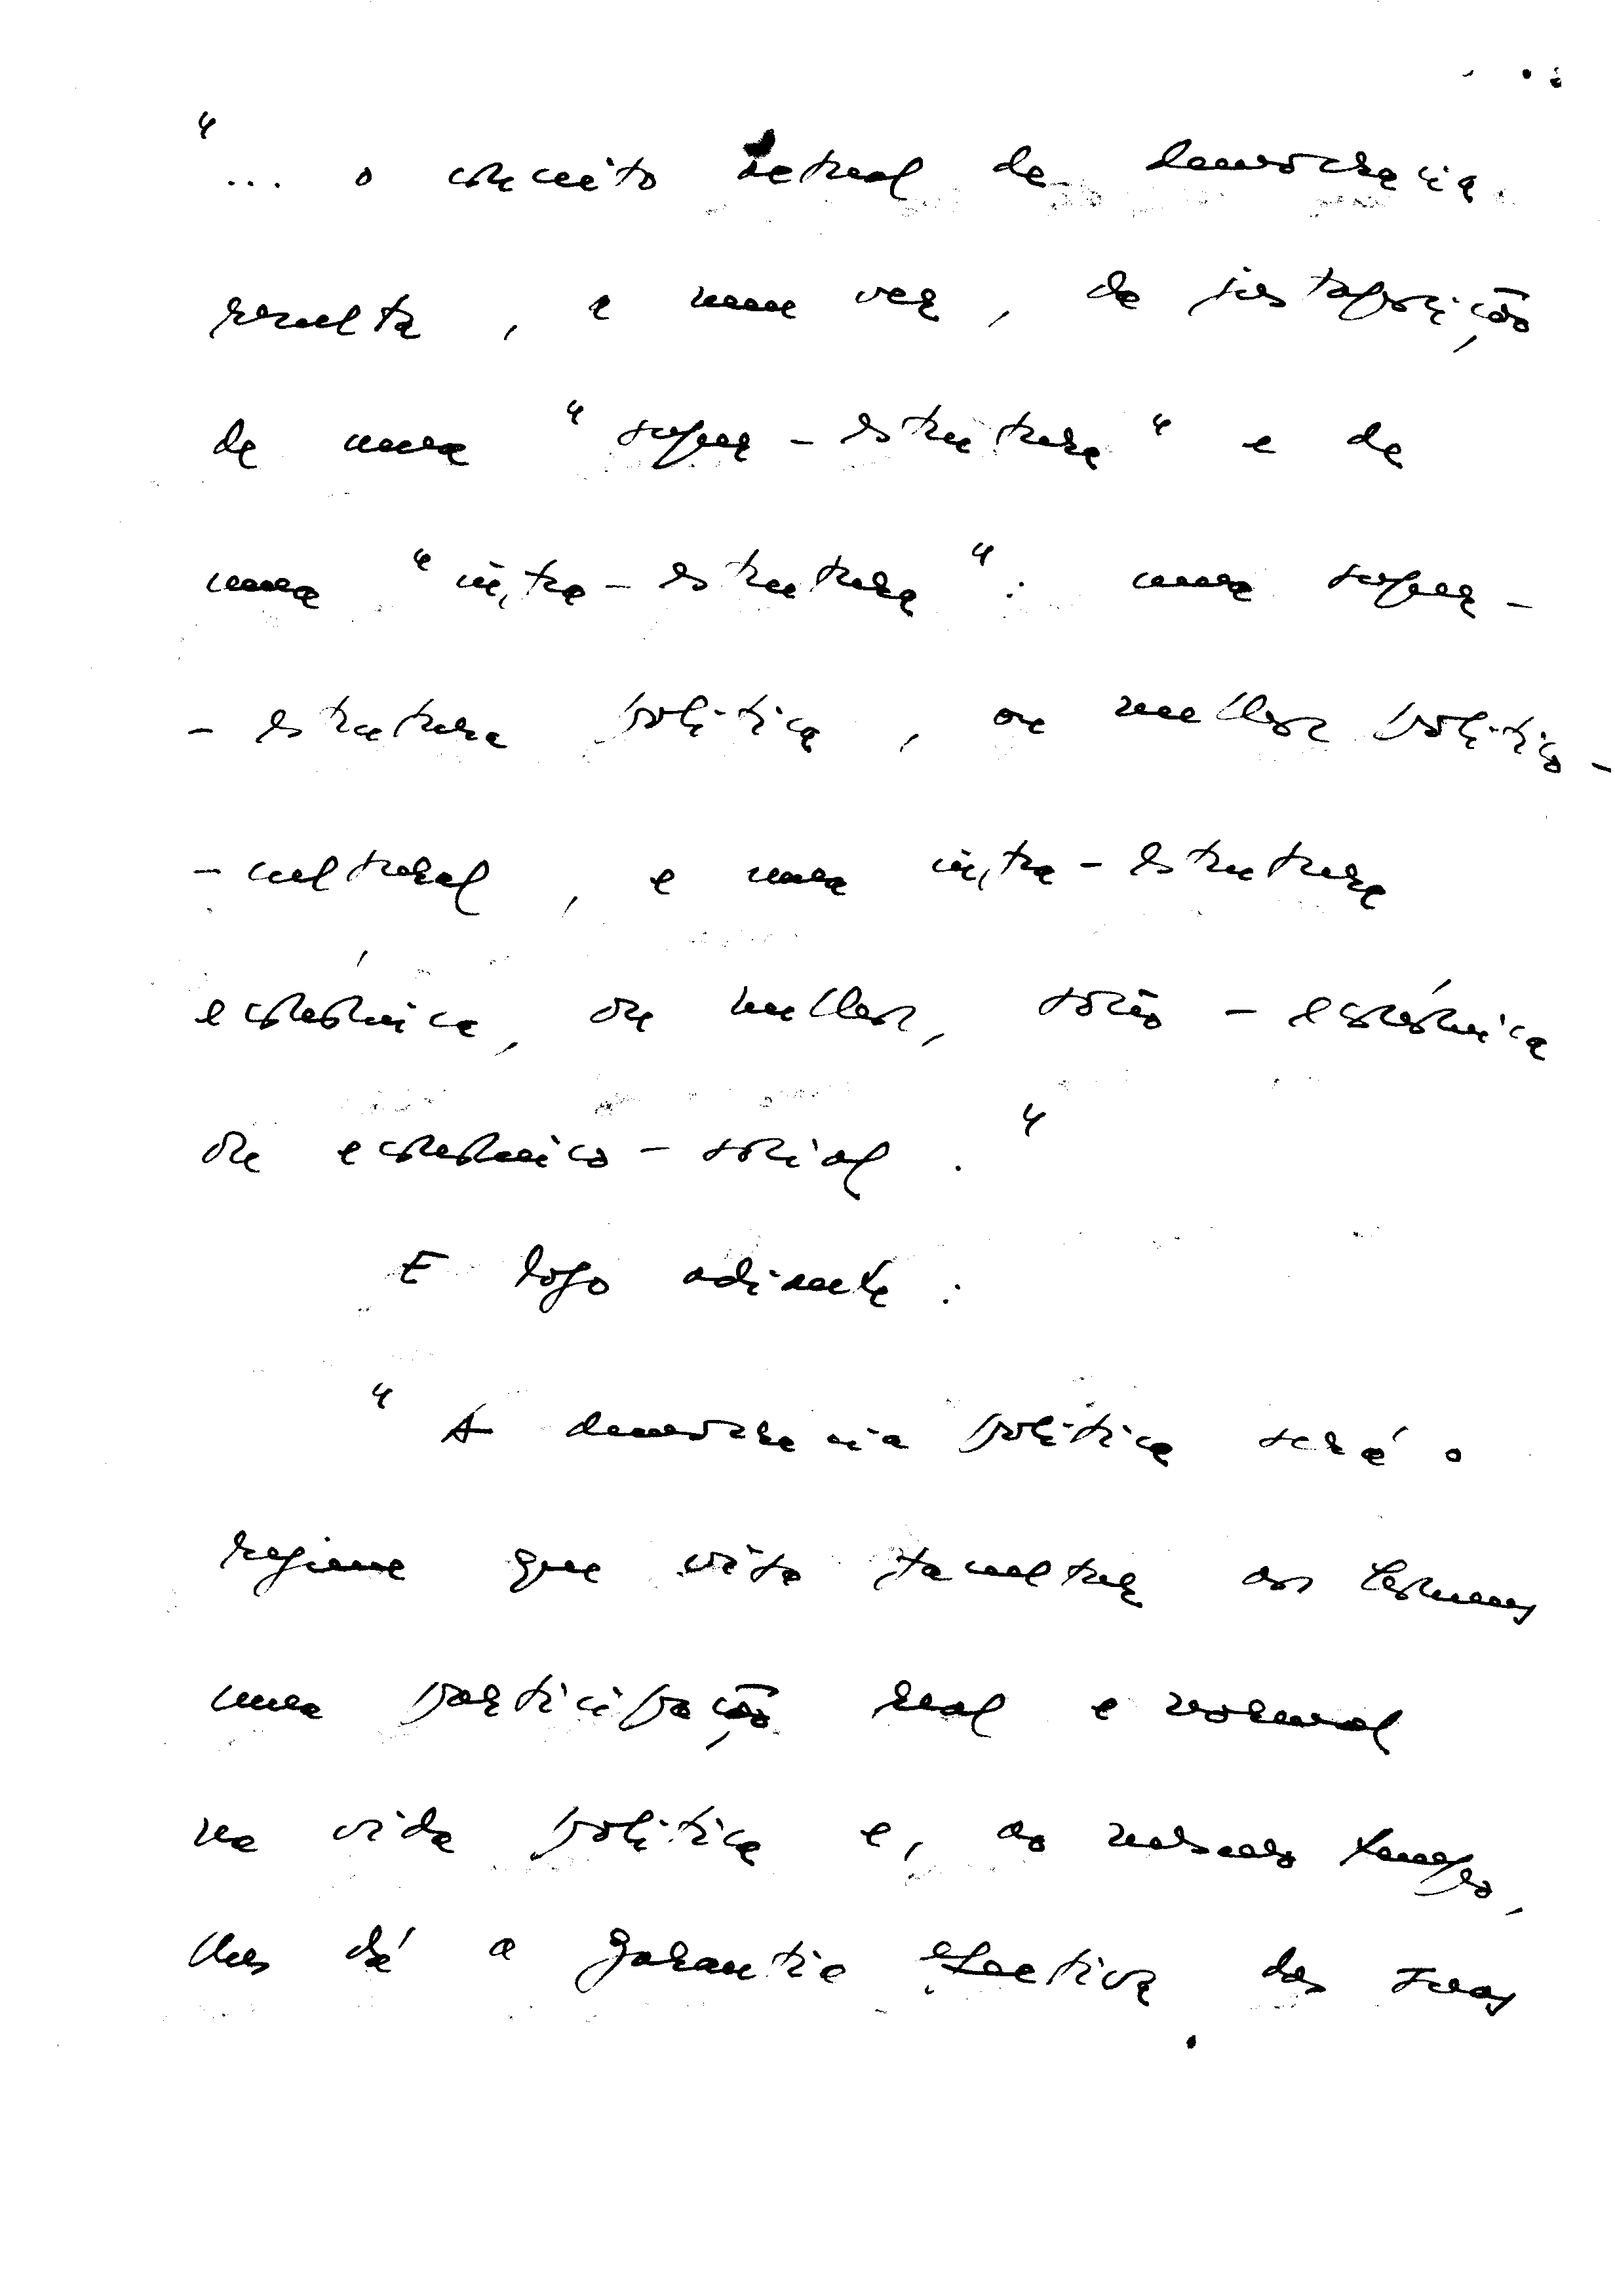 "... o conceito actual de democracia
resulta, a meu ver, da justaposição
de uma "super-estrutura" e de
uma "infra-estrutura": uma super-
-estrutura política, ou melhor político-
-cultural, e uma infra-estrutura
económica, ou melhor, sócio-económica
ou económico-social."
E logo adiante:
"A democracia política será o
regime que visa facultar aos homens
uma participação real e normal
na vida política e, ao mesmo tempo,
lhes dá a garantia efectiva das suas